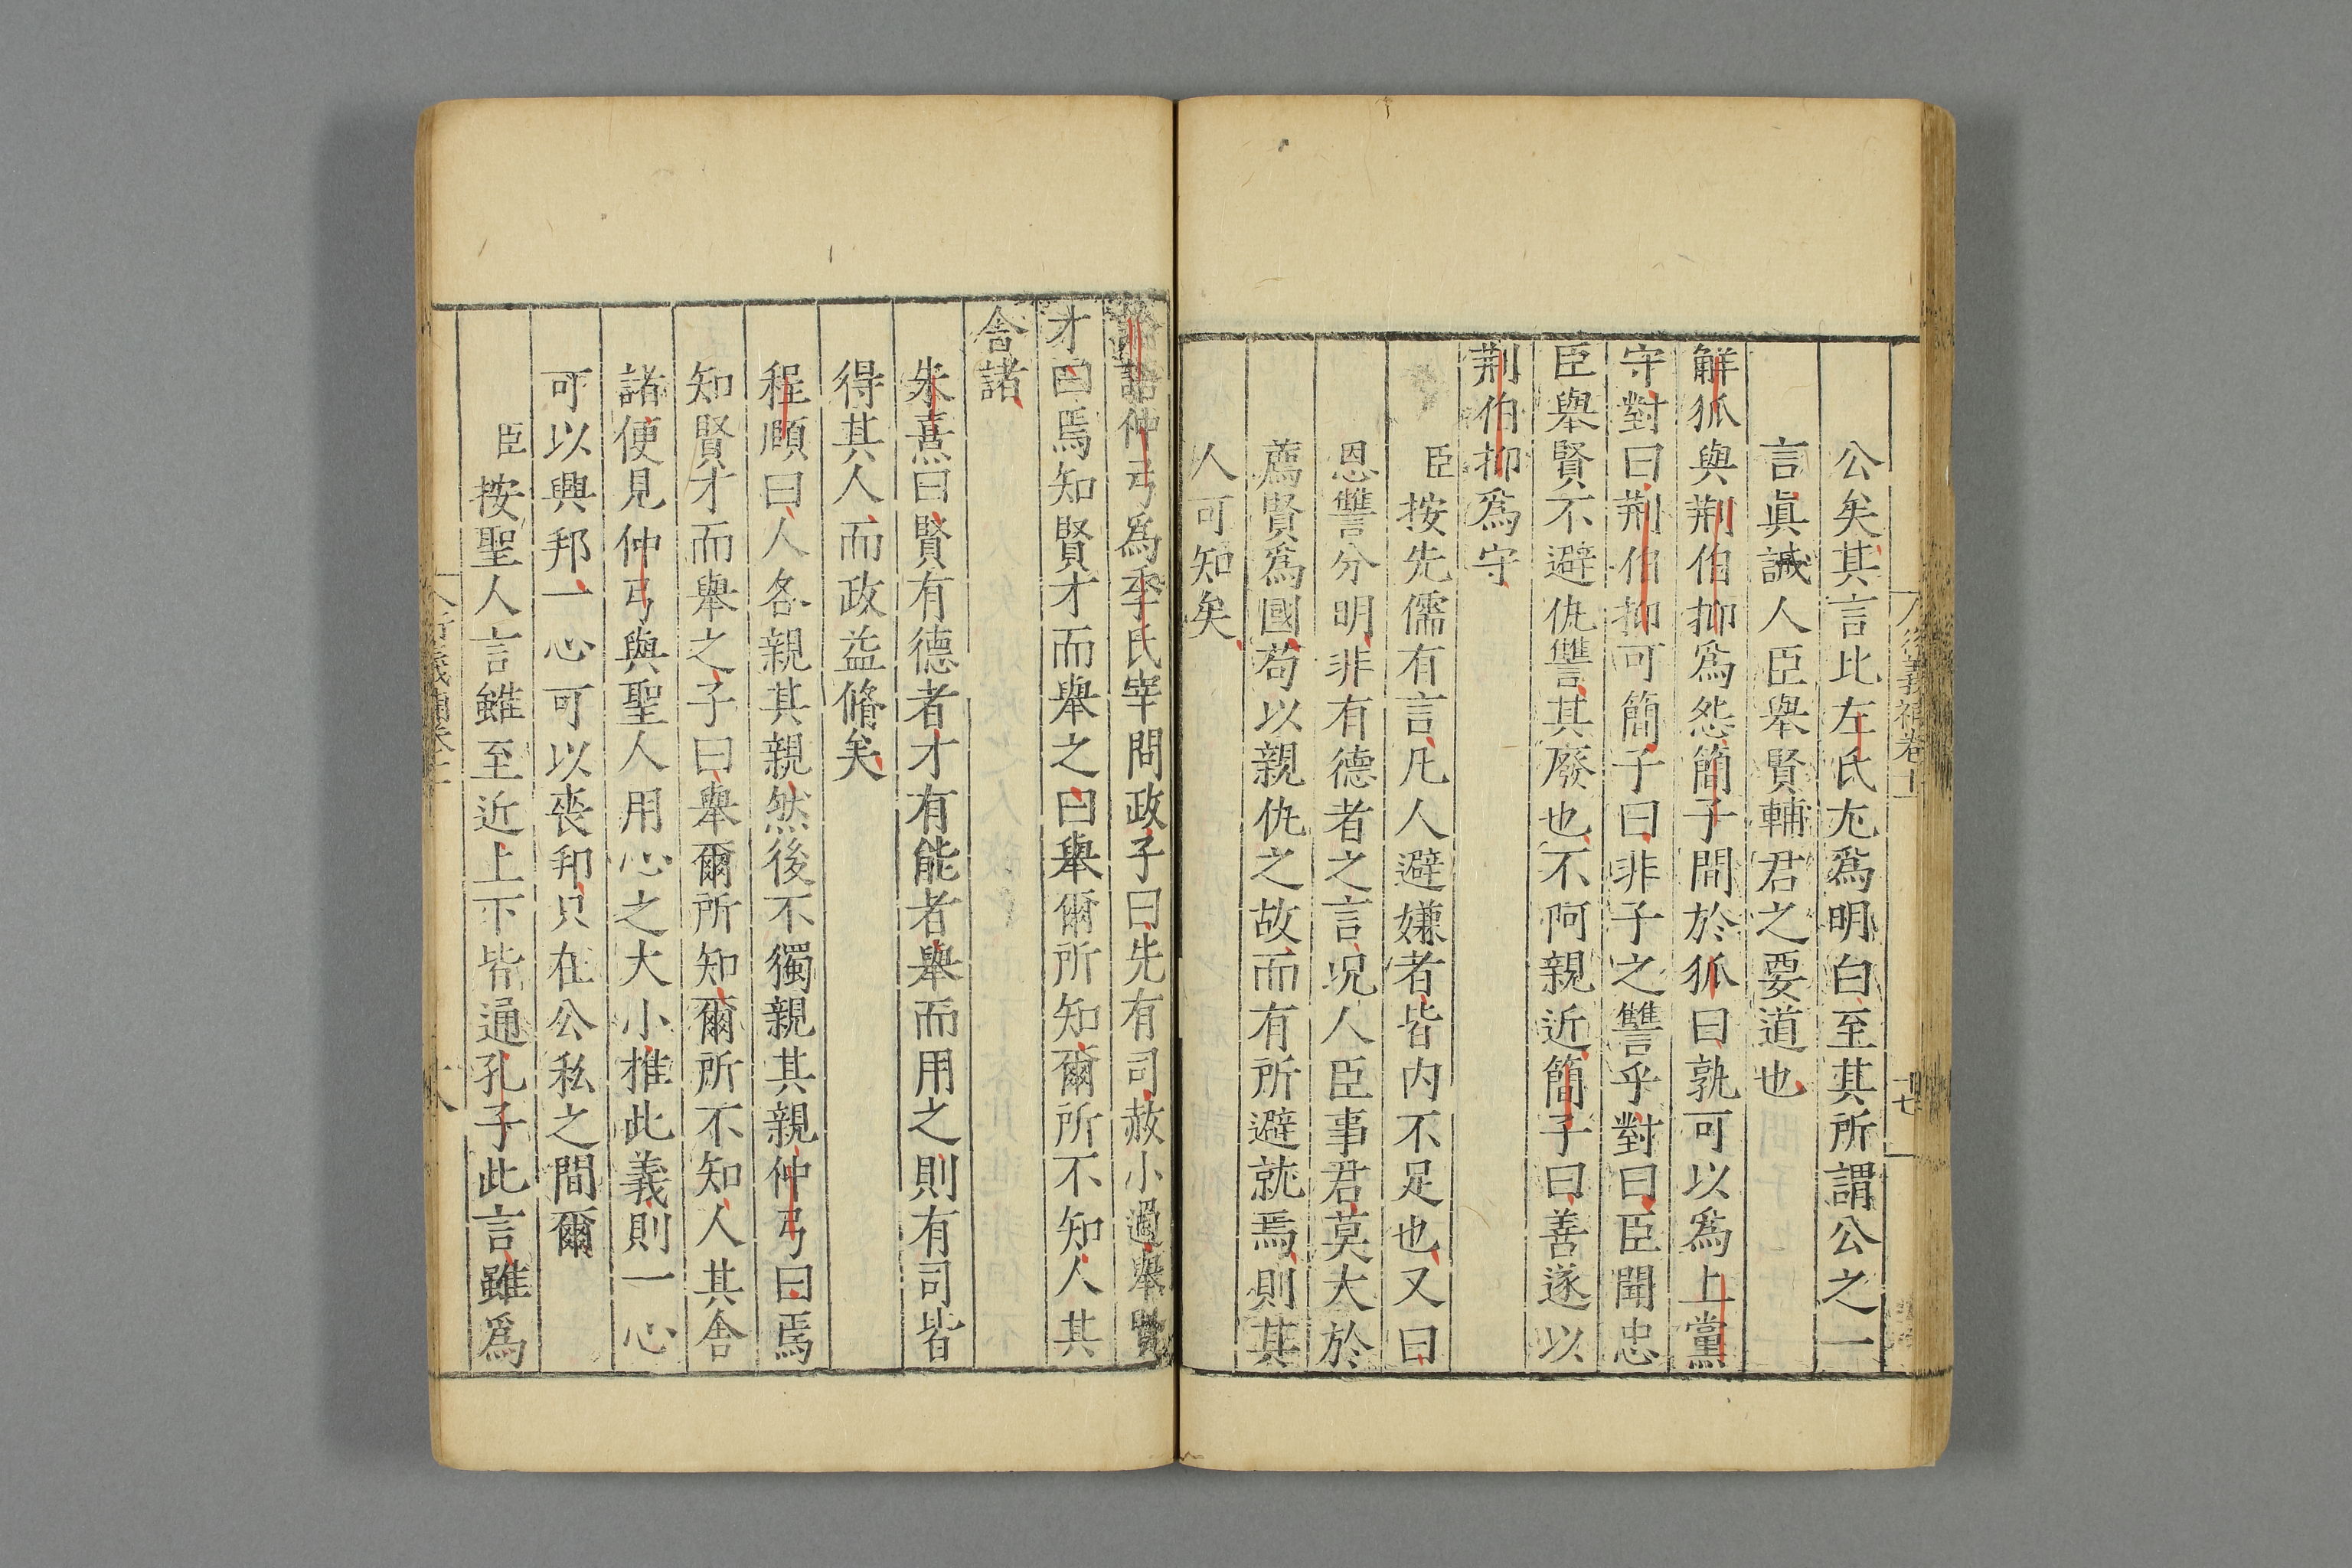 衍義補卷十
十七
公矣其言比左氏尤爲明白至其所謂公之一
言眞誠人臣舉賢輔君之要道也
解狐與荆伯抑爲怨簡子問於狐曰孰可以爲上黨
守對曰荆伯抑可簡子曰非子之讐乎對曰臣聞忠
臣舉賢不避仇讐其廢也不阿親近簡子曰善遂以
荆伯抑爲守
臣按先儒有言凡人避嫌者皆内不足也又曰
恩讐分明非有德者之言況人臣事君莫大於
薦賢爲國苟以親仇之故而有所避就焉則其
人可知矣
論語仲弓爲季氏宰問政子曰先有司赦小過舉賢
才曰焉知賢才而舉之曰舉爾所知爾所不知人其
舍諸
朱熹曰賢有德者才有能者舉而用之則有司皆
得其人而政益脩矣
程頤曰人各親其親然後不獨親其親仲弓曰焉
知賢才而舉之子曰舉爾所知爾所不知人其舍
諸便見仲弓與聖人用心之大小推此義則一心
可以興邦一心可以喪邦只在公私之間爾
臣按聖人言雖至近上下皆通孔子此言雖爲